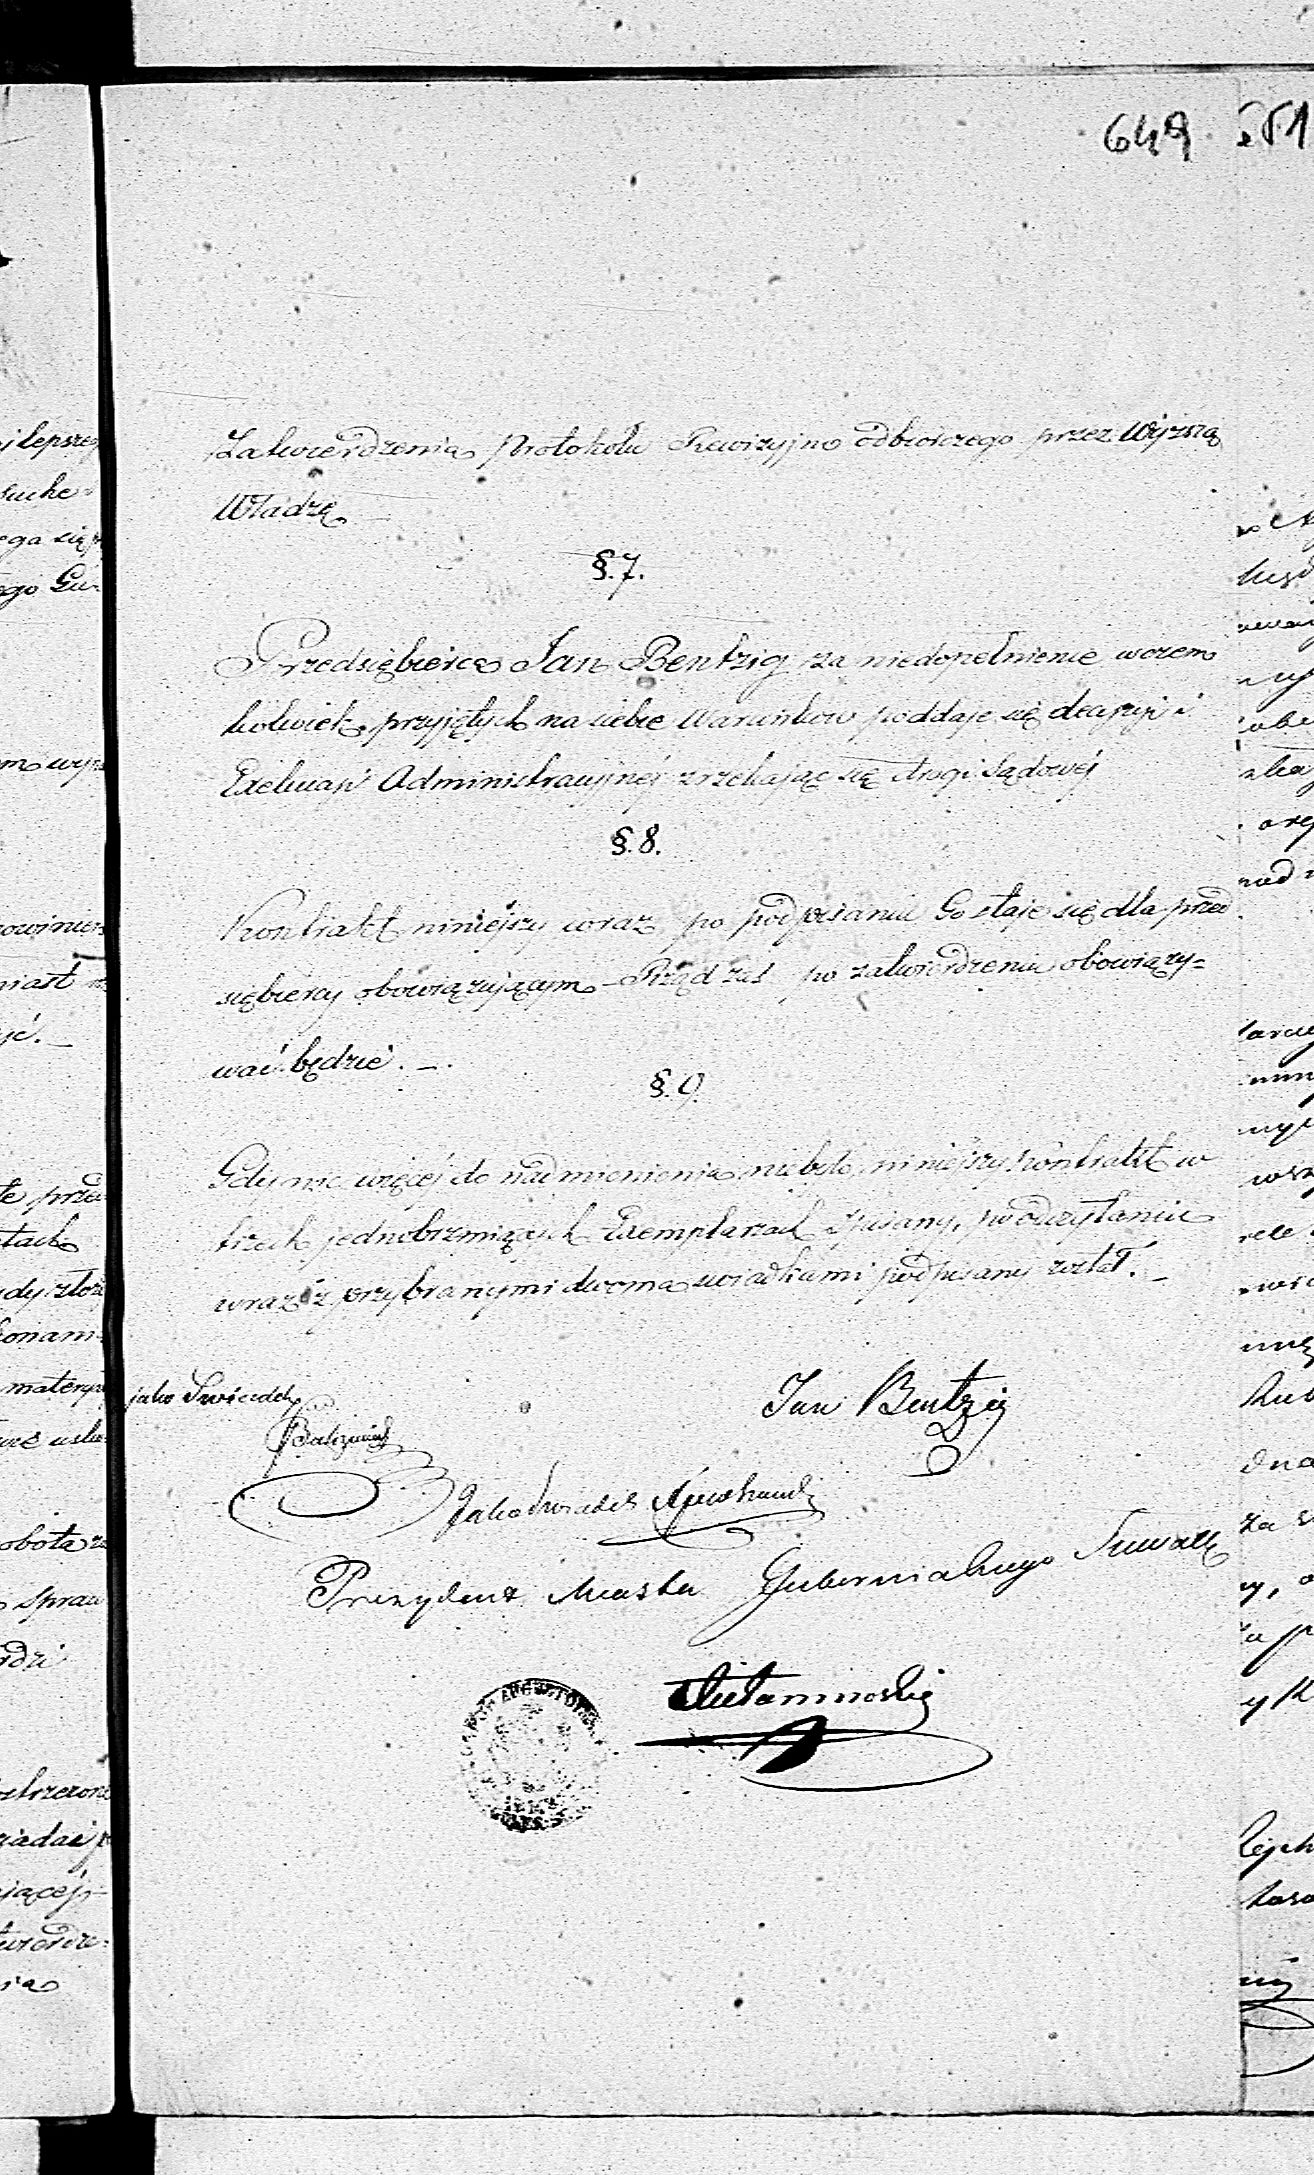 649
Zatwierdzenia Protokołu Rewizyjno odbiorczego przez Wyższą
Władzę
§. 7.
Przedsiębierca Jan Bentzig za niedopełnienie w czem
kolwiek przyjętych na siebie Warunków poddaje się decyzyi i
Exekucyi Administracyjnej zrzekając się drogi Sądowej
§. 8.
Kontrakt niniejszy wraz po podpisaniu Go staje się dla przed
siębiercy obowiązującym – Rząd zaś po zatwierdzeniu obowiązy=
wać będzie. –
§. 9.
Gdy nic więcej do nadmienienia niebyło, niniejszy kontrakt w
trzech jednobrzmiących Exemplarzach spisany, po odczytaniu
wraz z przybranymi dwoma swiadkami podpisany został. –
jako Swiadek
Jan Bentzig
Jako Swiadek
Prezydent Miasta Gubernialnego Suwałk